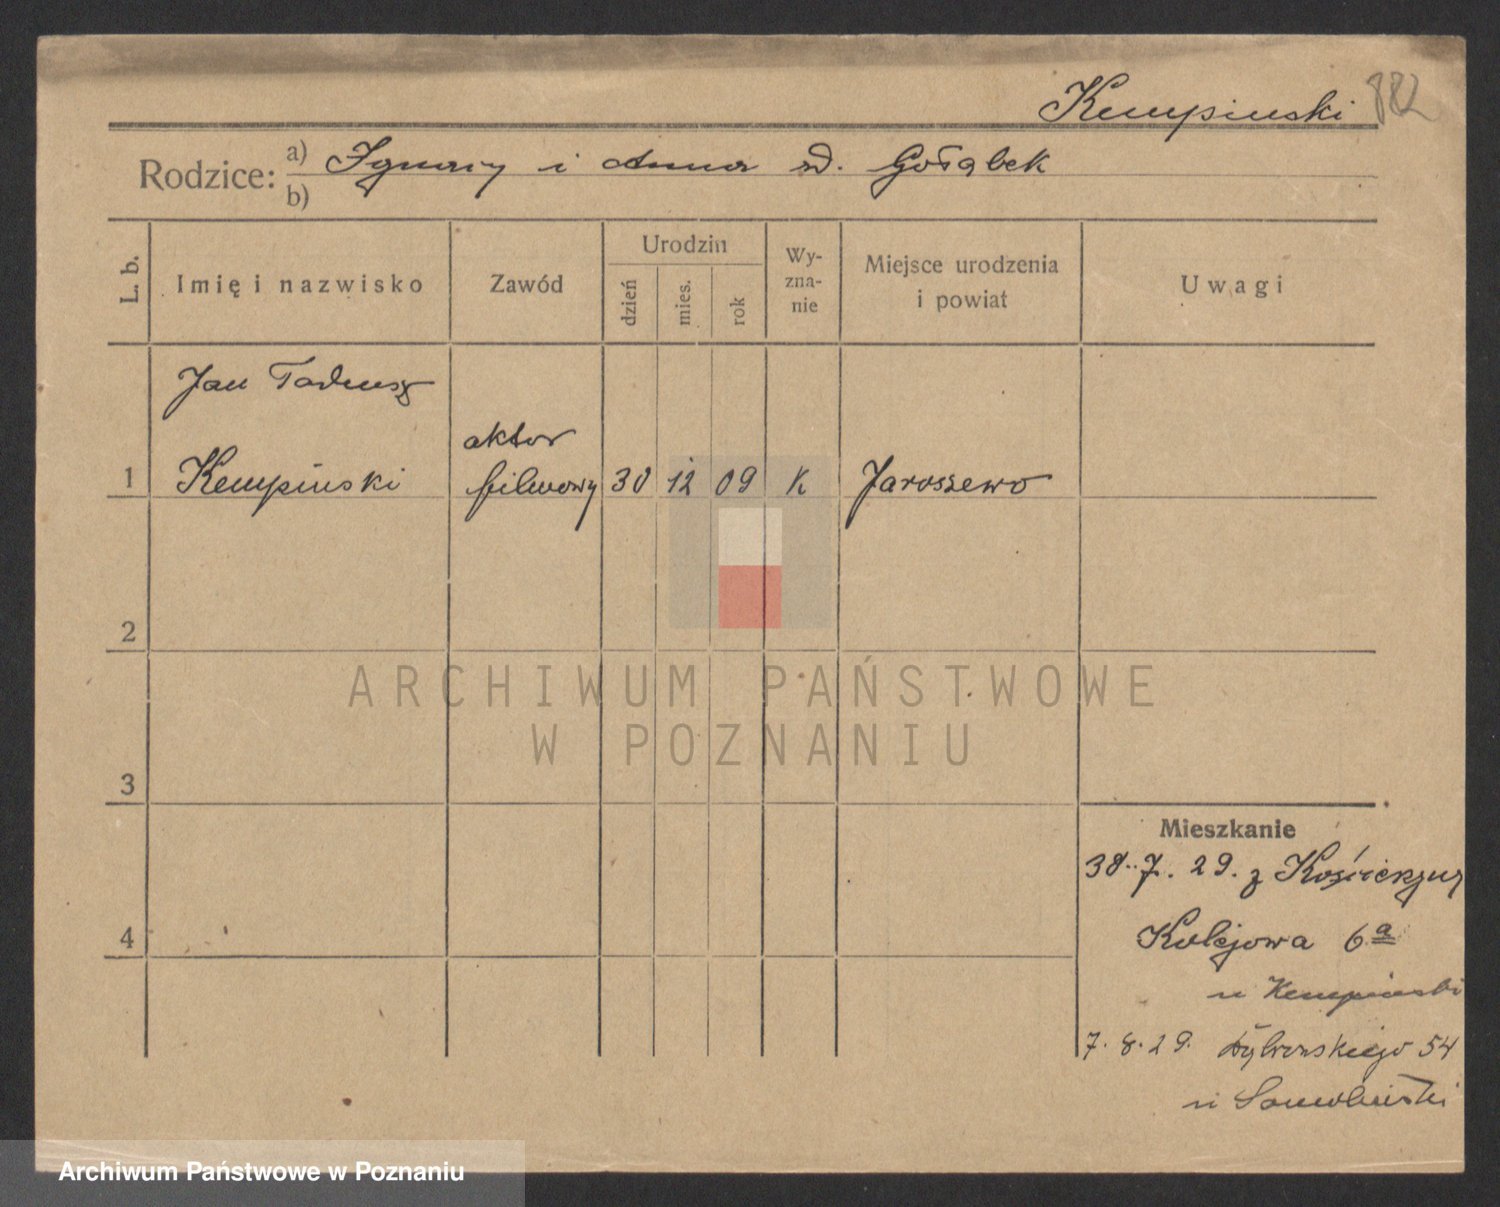 Kempinski 882
Rodzice: a) Ignacy i Anna zd. Gołąbek
b)
L. b.
Imię i nazwisko
Zawód
Urodzin
dzień
mies.
rok
Wy-
zna-
nie
Miejsce urodzenia
i powiat
Uwagi
Jan Tadeusz
aktor
1 Kempinski filmowy 30 12 09 K Jaroszewo
2
3
4
Mieszkanie
30.7.29. z Kościerzyny
Kolejowa 6a
u Kempinski
7.8.29. 54
u
ARCHIWUM PAŃSTWOWE
W POZNANIU
Archiwum Państwowe w Poznaniu